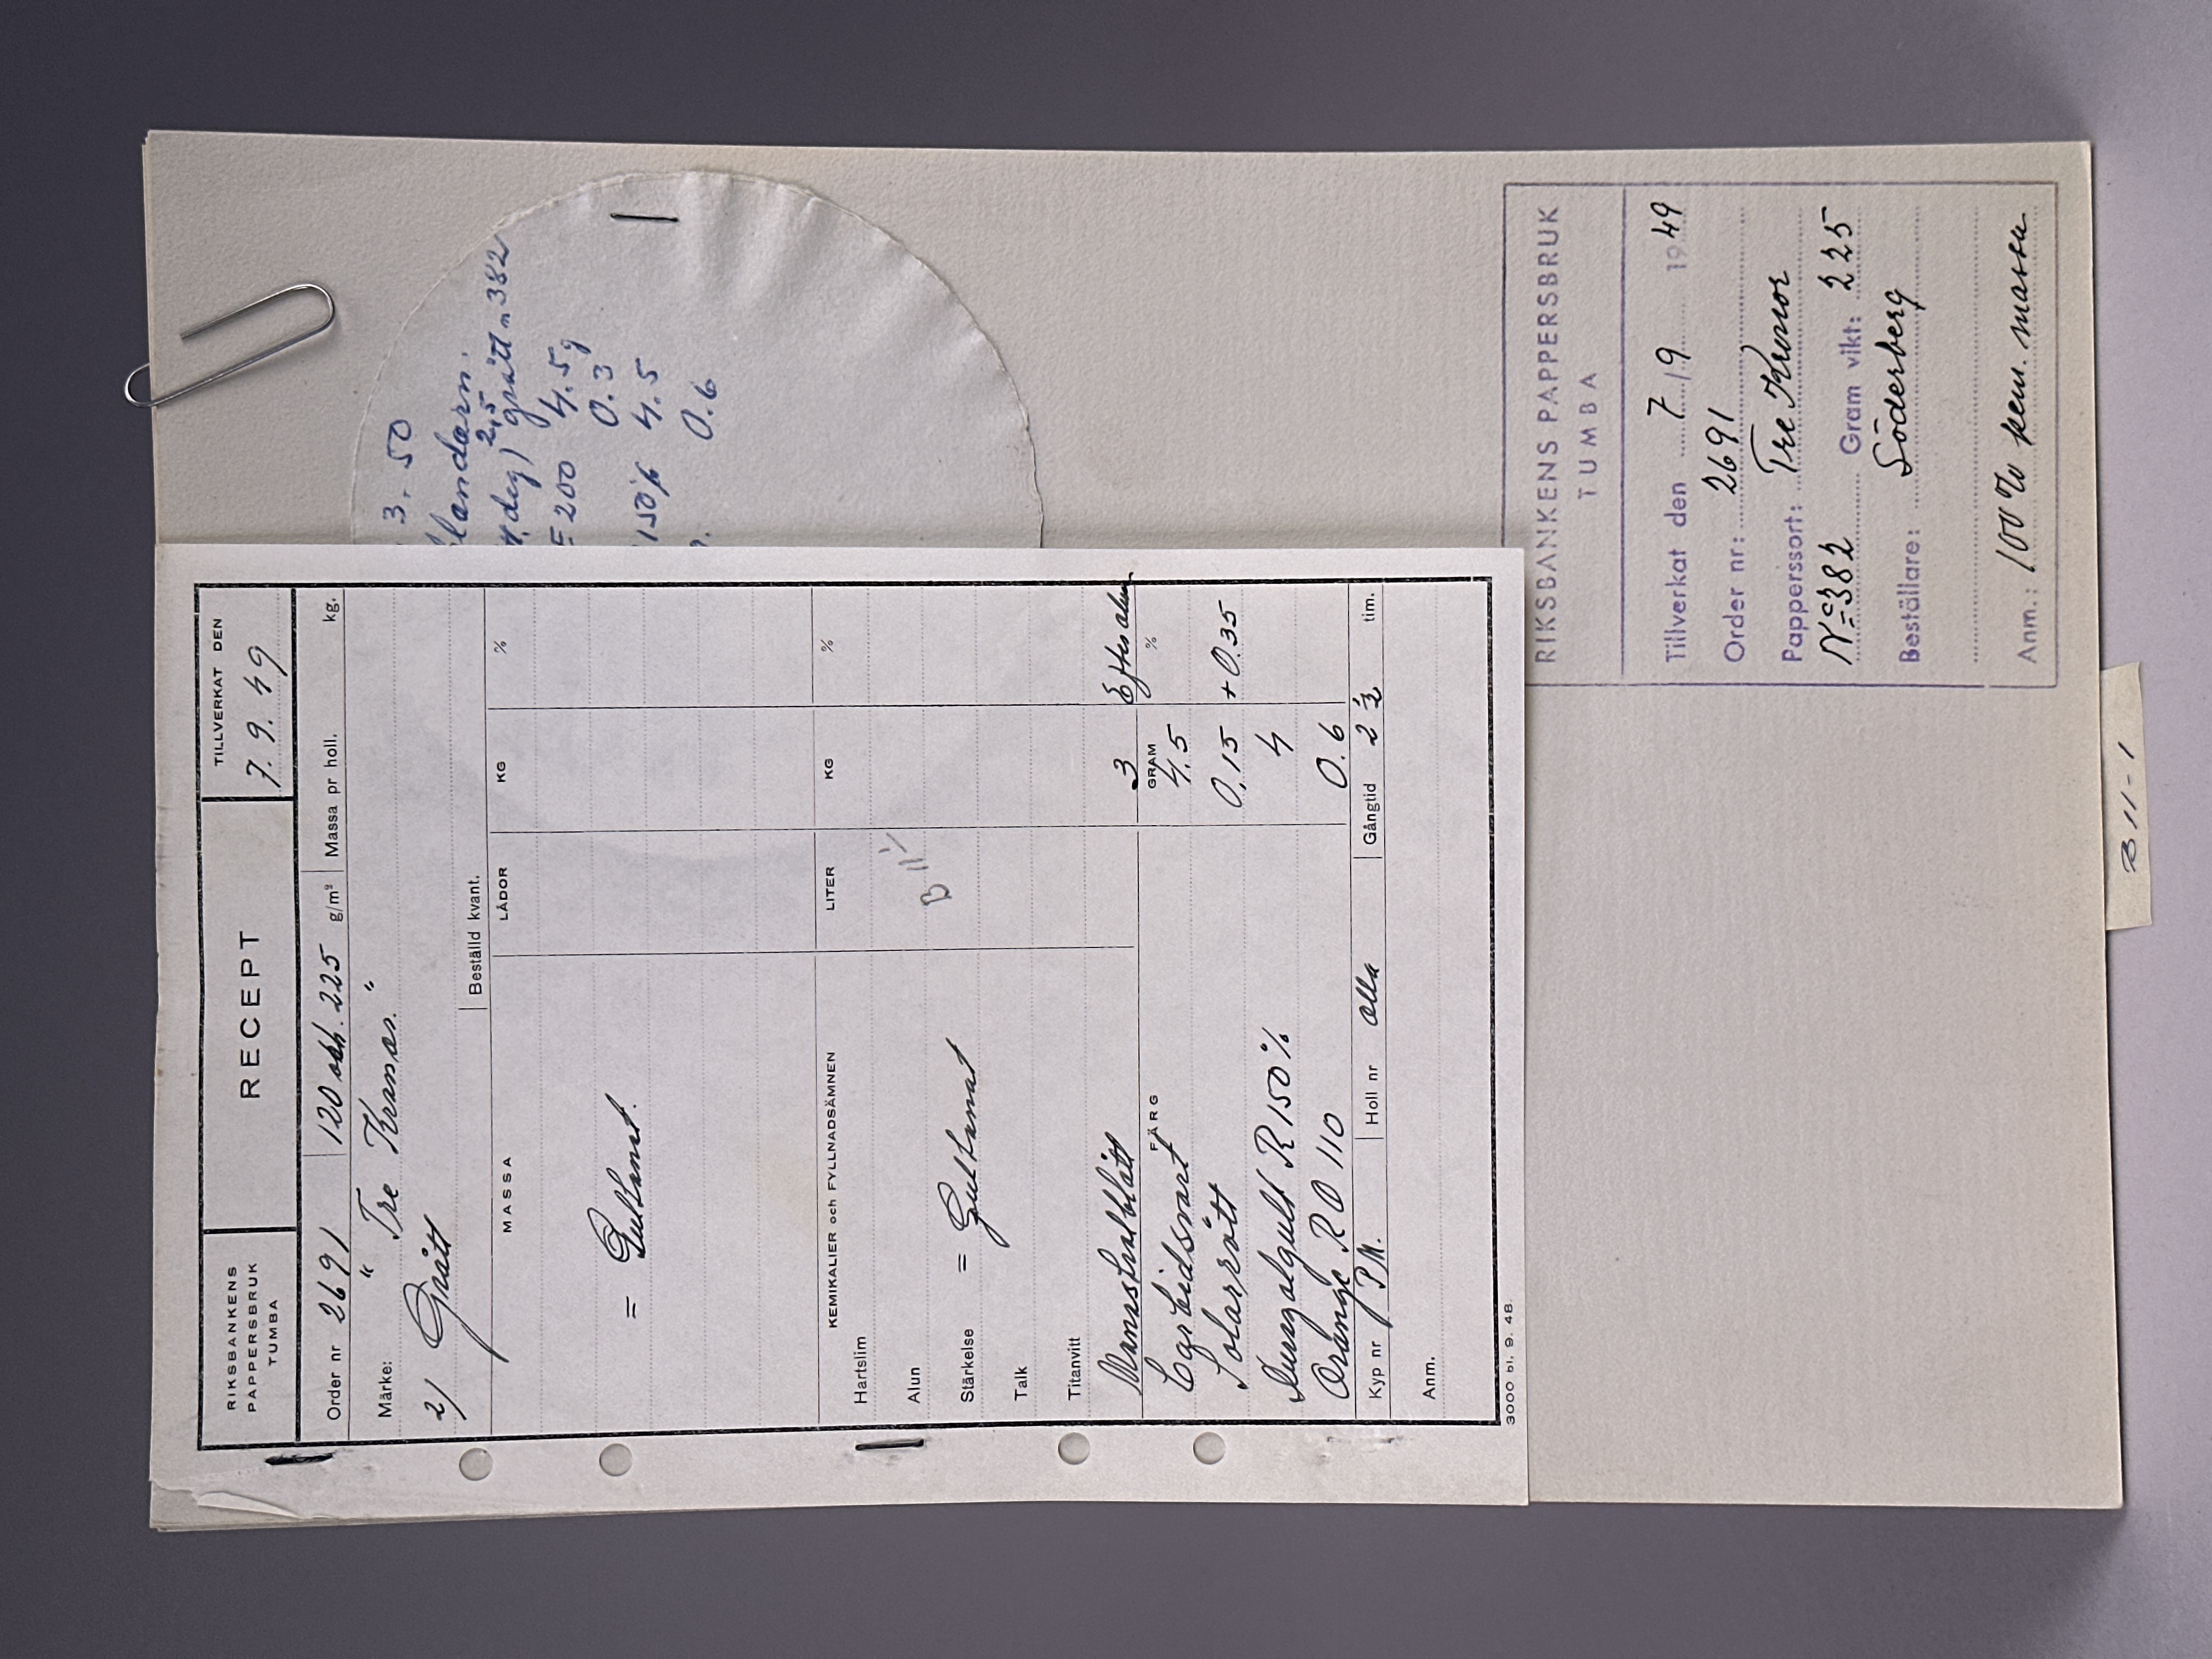 RIKSBANKENS
PAPPERSBRUK
TUMBA
RECEPT
TILLVERKAT DEN
7. 9. 49
Order nr 2691 120 och. 225 g/m² Massa pr holl. kg.
Märke: " Tre Kronor. "
2/ Grått
Beställd kvant.
MASSA LÅDOR KG %
=
KEMIKALIER och FYLLNADSÄMNEN LITER KG %
Hartslim
Alun B 11/1
Stärkelse =
Talk
Titanvitt
3 Efter alun
FÄRG GRAM %
4,5
Solarrött 0,15 +0.35
R 150% 4
Orange R O 110 0.6
Kyp nr P.M. Holl nr alla Gångtid 2 ½ tim.
Anm.
3000 bl. 9. 48.
3. 50
2,5
grått n 382
= 200 4.5 g
0.3
150% 4.5
0.6
RIKSBANKENS PAPPERSBRUK
TUMBA
Tillverkat den 7/9 1949
Order nr: 2691
Papperssort: Tre Kronor
N° 382 Gram vikt: 225
Beställare: Söderberg
Anm.: 100 % kem. massa
B 11-1